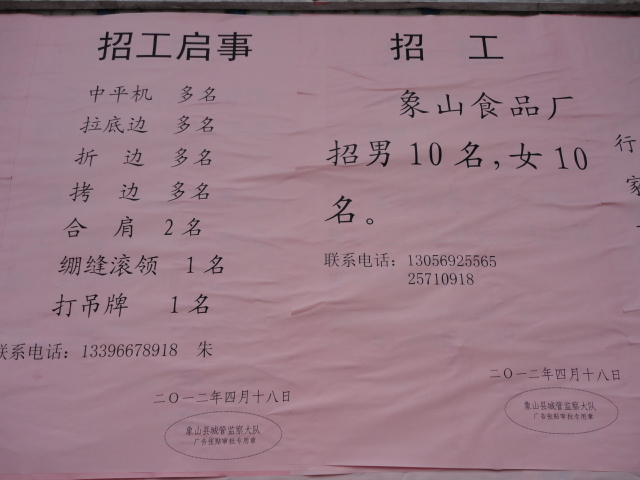 招工启事
中平机 多名
拉底边 多名
折 边 多名
拷 边 多名
合 肩 2名
绷缝滚领 1名
打吊牌 1名
联系电话：13396678918 朱
二〇一二年四月十八日
象山县城管监察大队
广告张贴审批专用章
招 工
象山食品厂
招男10名，女10
名。
联系电话：13056925565
25710918
二〇一二年四月十八日
象山县城管监察大队
广告张贴审批专用章
行
家